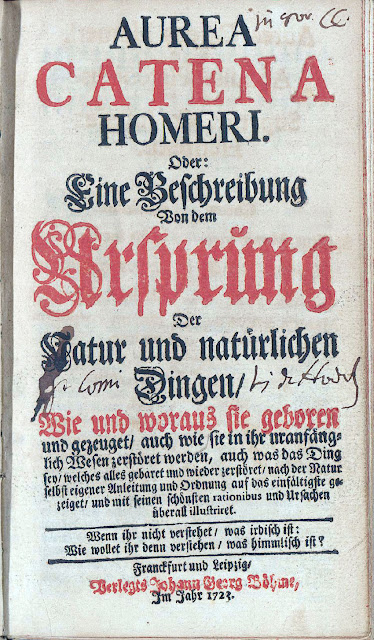 AUREA
CATENA
HOMERI.
Oder:
Eine Beschreibung
Von dem
Ursprung
Der
Natur und natürlichen
Dingen/
Wie und woraus sie geboren
und gezeuget/ auch wie sie in ihr uranfäng-
lich Wesen zerstöret werden, auch was das Ding
sey/ welches alles gebäret und wieder zerstöret/ nach der Natur
selbst eigener Anleitung und Ordnung auf das einfältigste ge-
zeiget/ und mit seinen schönsten rationibus und Ursachen
überall illustriret.
Wenn ihr nicht verstehet/ was irdisch ist:
Wie wollet ihr denn verstehen/ was himmlisch ist?
Franckfurt und Leipzig/
Verlegts Johann Georg Böhme,
Im Jahr 1723.